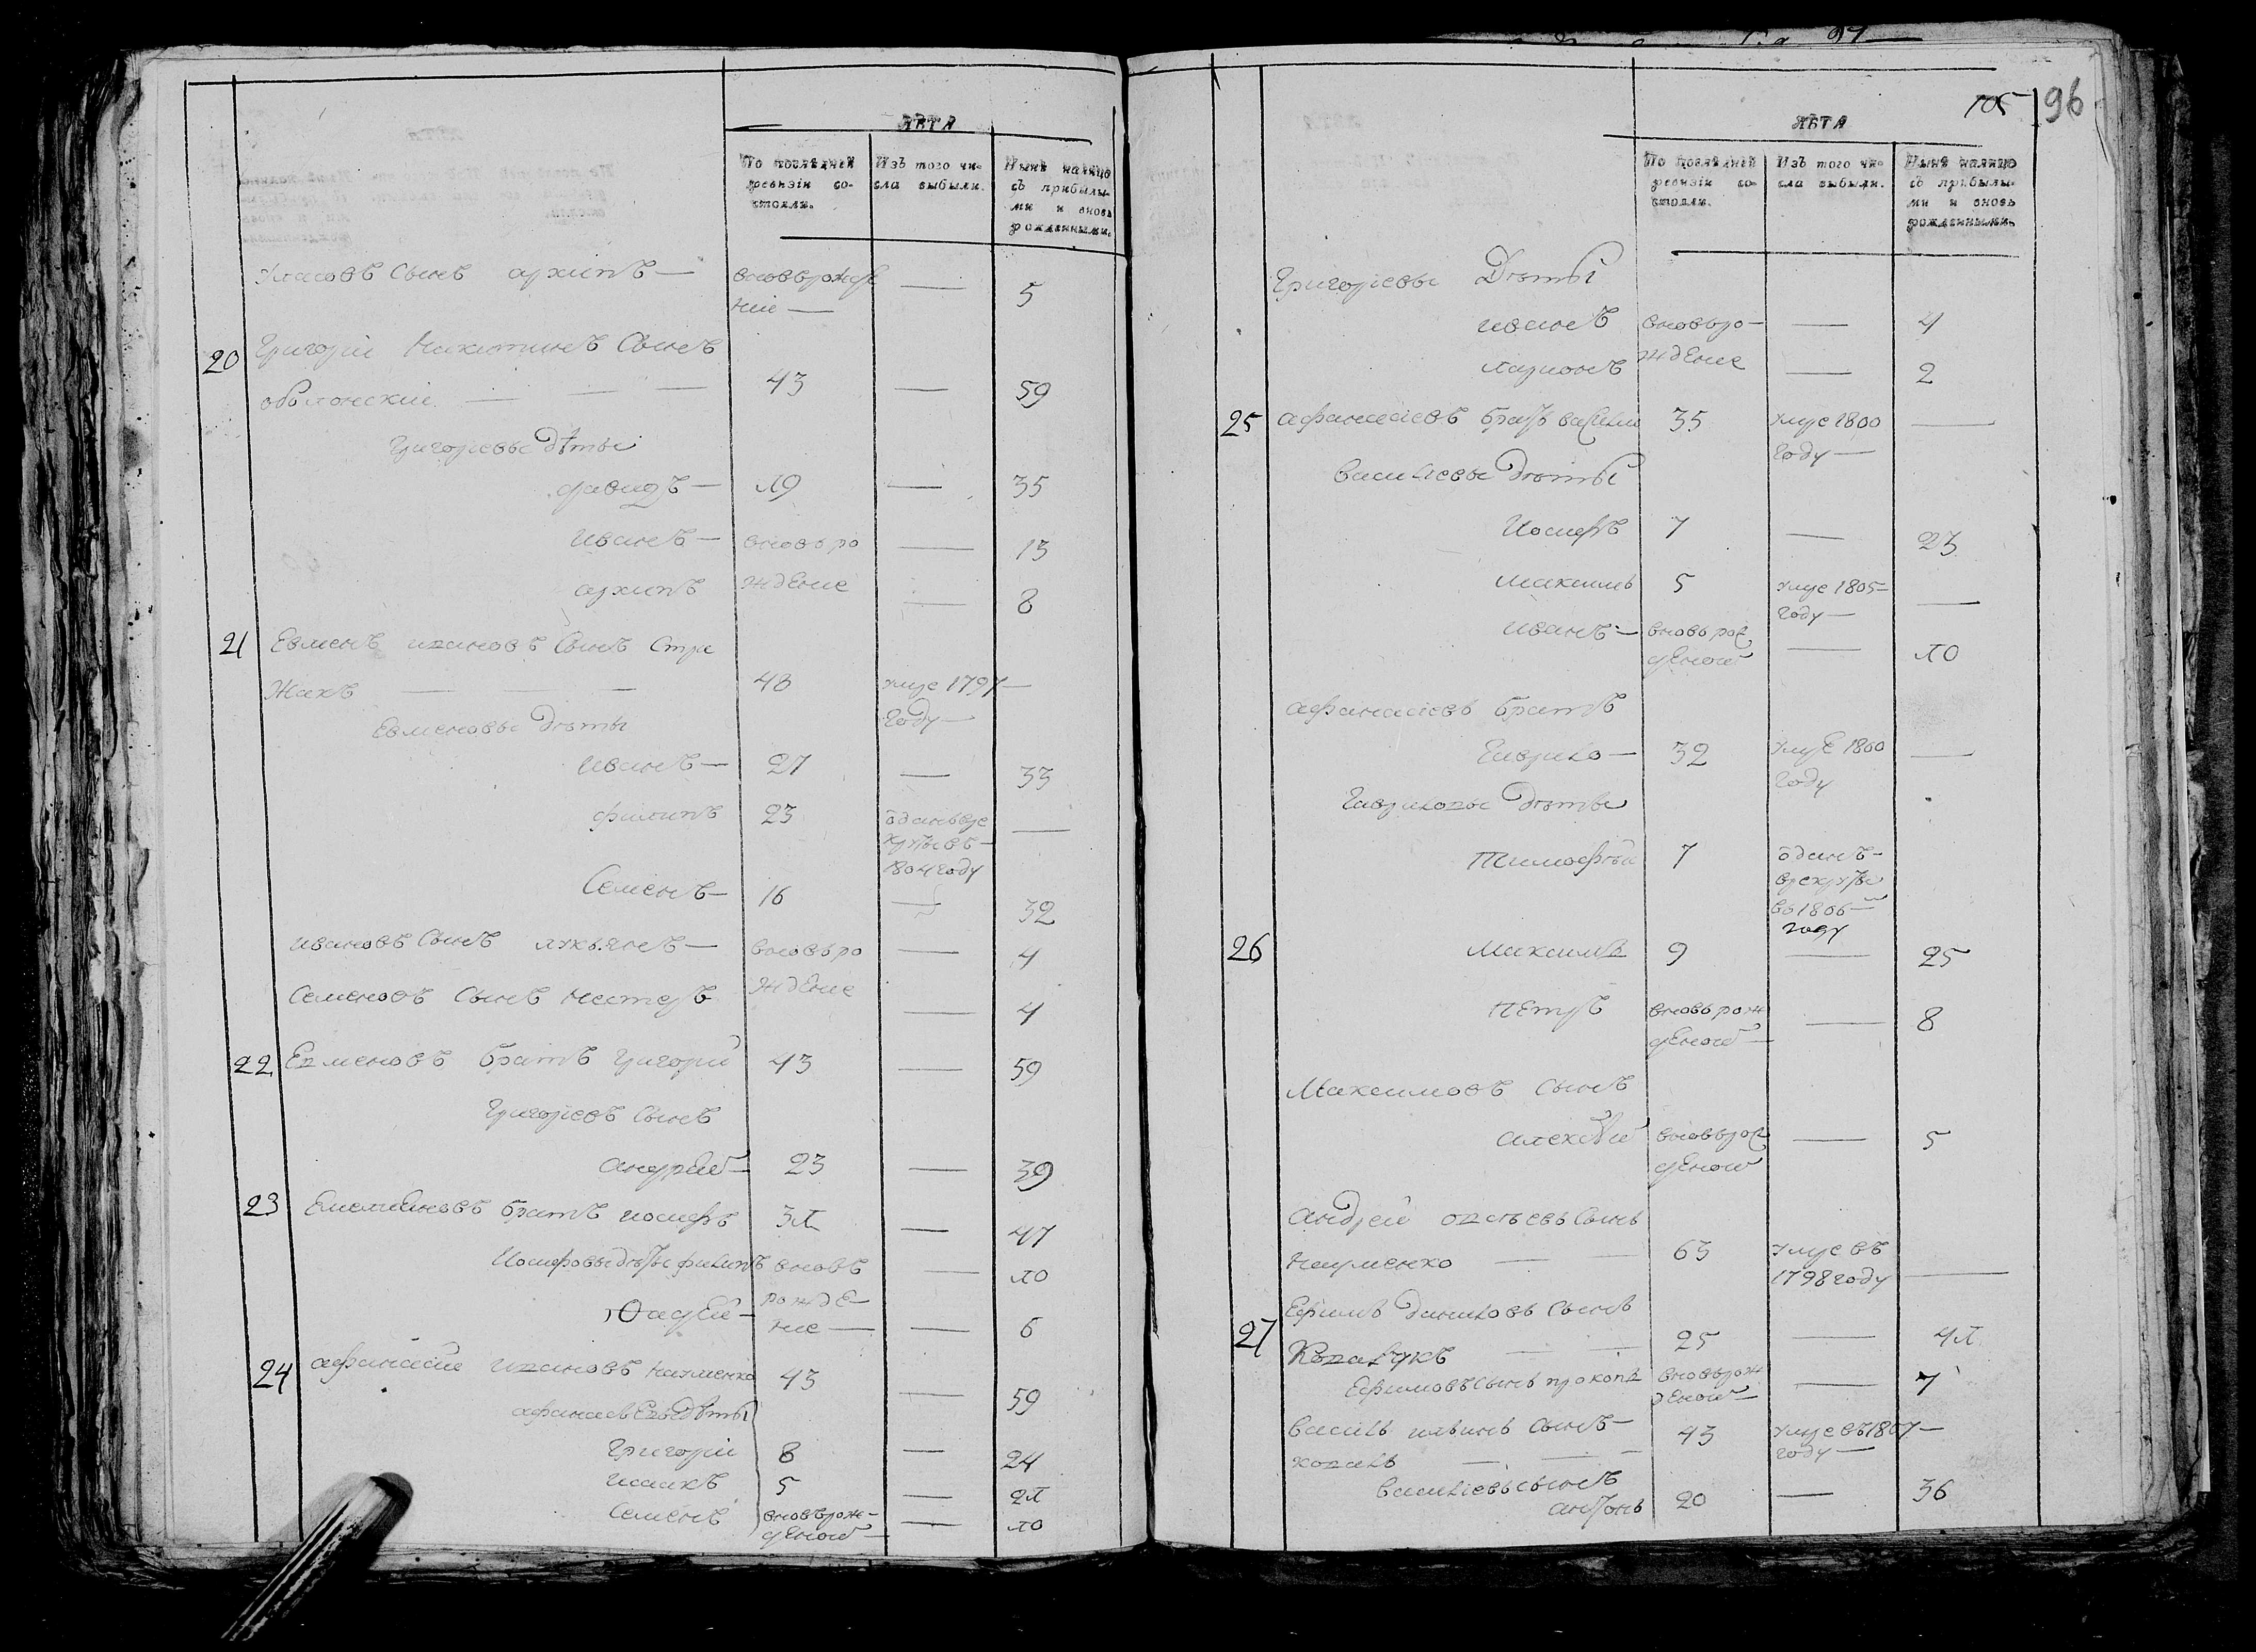 ЛѢТА
По послѣдней ревизіи состояли.
Изъ того числа выбыли.
Нынѣ налицо съ прибылыми и вновь рожденными.
сынъ архипъ — — 5
20 Григорій Никитинъ Сынъ
оболонскій — — — 43 — 59
Григориевы дѣти
давидъ — 19 — 35
иванъ — вновь ро — 13
архипъ ждение — 8
21 Евменъ ивановъ Сынъ Стри
жакъ — — 48 умре 1797 —
году —
Евменовы дѣти
иванъ — 27 — 33
филипъ 23 —
1804 году
Семенъ — 16 — 32
ивановъ Сынъ лукьянъ — вновь ро — 4
Семеновъ Сынъ нестеръ ждение — 4
22 Евменовъ братъ григорій 43 — 59
Григориевъ Сынъ
андрей — 23 — 39
23 братъ иосифъ 31 — 47
Иосифовы дѣти филипъ вновь — 10
рожде
ние — — 6
24 афанасий ивановъ науменко 43 — 59
дѣти
Григорій 8 — 24
исаакъ 5 — 21
Семенъ вноврож — 10
деной —
105 96
ЛѢТА
По послѣдней ревизіи состояли.
Изъ того числа выбыли.
Нынѣ налицо съ прибылыми и вновь рожденными.
Григориевы Дѣти
иванъ вновь ро — — 4
ларионъ ждение — 2
25 афанасиевъ братъ василий 35 умре 1800 —
году —
василиевы дѣти
Иосифъ 7 — 23
максимъ 5 умре 1805 —
году —
иванъ — вновь рож — 10
деной
афанасиевъ братъ
гаврило — 32 умре 1800 —
году
гавриловы дѣти
тимофѣй 7 одинъ —
врекруты
въ 1806 —
году
26 максимъ 9 — 25
петръ вновь рож — 8
деной —
Максимовъ сынъ
алексѣй вновь рож — 5
деной
андрей сынъ
науменко — — 63 умре въ
1798 году —
27 Ефимъ даниловъ сынъ
Ковальчукъ — — 25 — 41
Ефимовъ сынъ прокопъ вновьрож — 7
деной —
василь ильинъ сынъ — 43 умре въ 1807 —
коваль — — — году —
василиевъ сынъ
антонъ 20 — 36